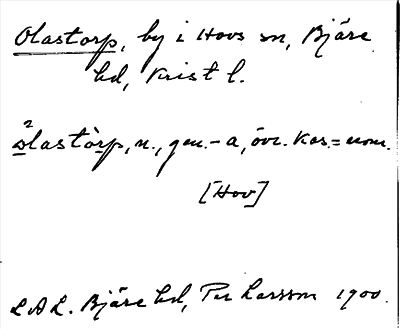 Olastorp, by i Hovs sn, Bjäre
hd, Krist l.
ɷ̀²lastòrp, n., gen. -a, övr. kas. = nom.
[Hov]
L.A.L. Bjäre hd, Per Larsson 1900.